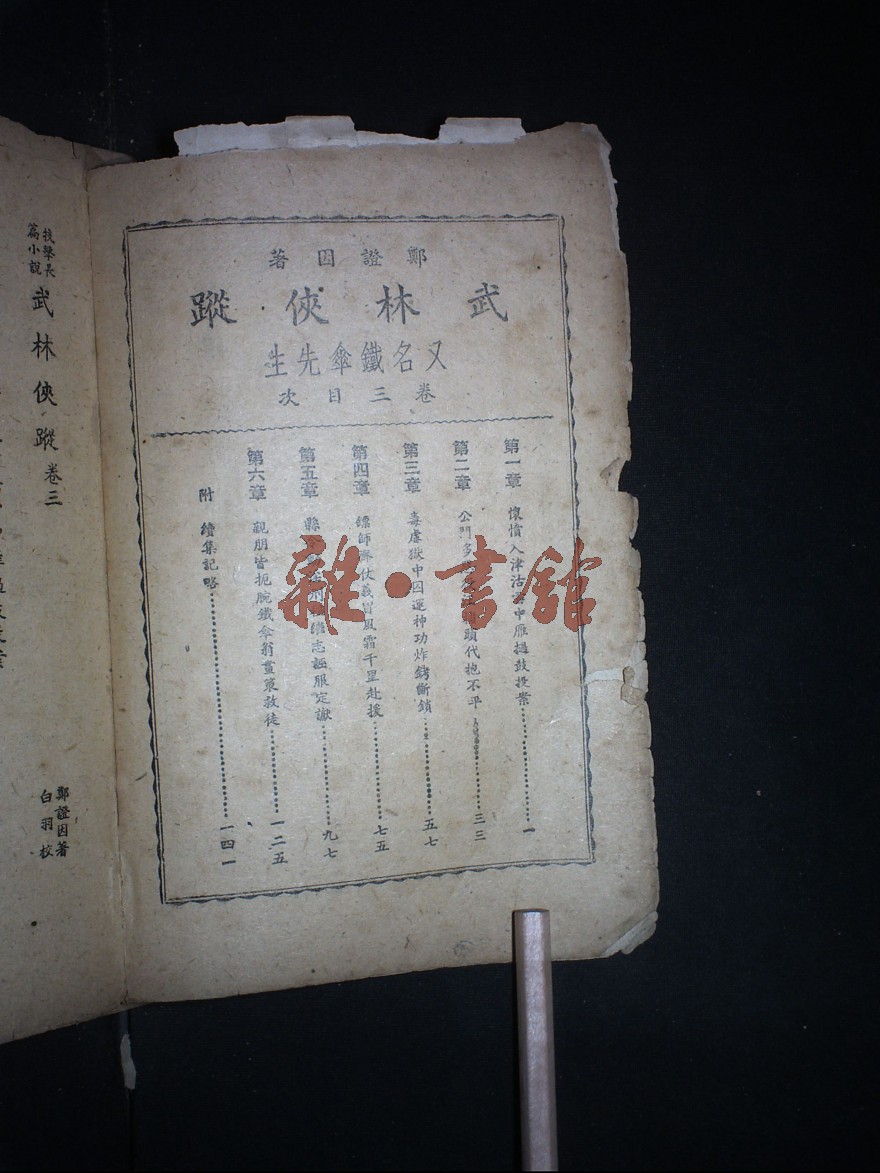 鄭證因著
武林俠蹤
又名鐵傘先生
卷三目次
第一章 懷憤入津沽 中雁擂鼓授業 一
第二章 公門多 代抱不平 三三
第三章 毒虐獄中囚運神功炸銬斷鎖 五七
第四章 鏢師 仗義冒風霜千里赴援 七五
第五章 縣 志誣服定讞 九七
第六章 親朋皆扼腕鐵傘翁畫策救徒 一二五
附 續集記略 一四一
技擊長篇小說 武林俠蹤 卷三
鄭證因著
白羽校
雜·書館